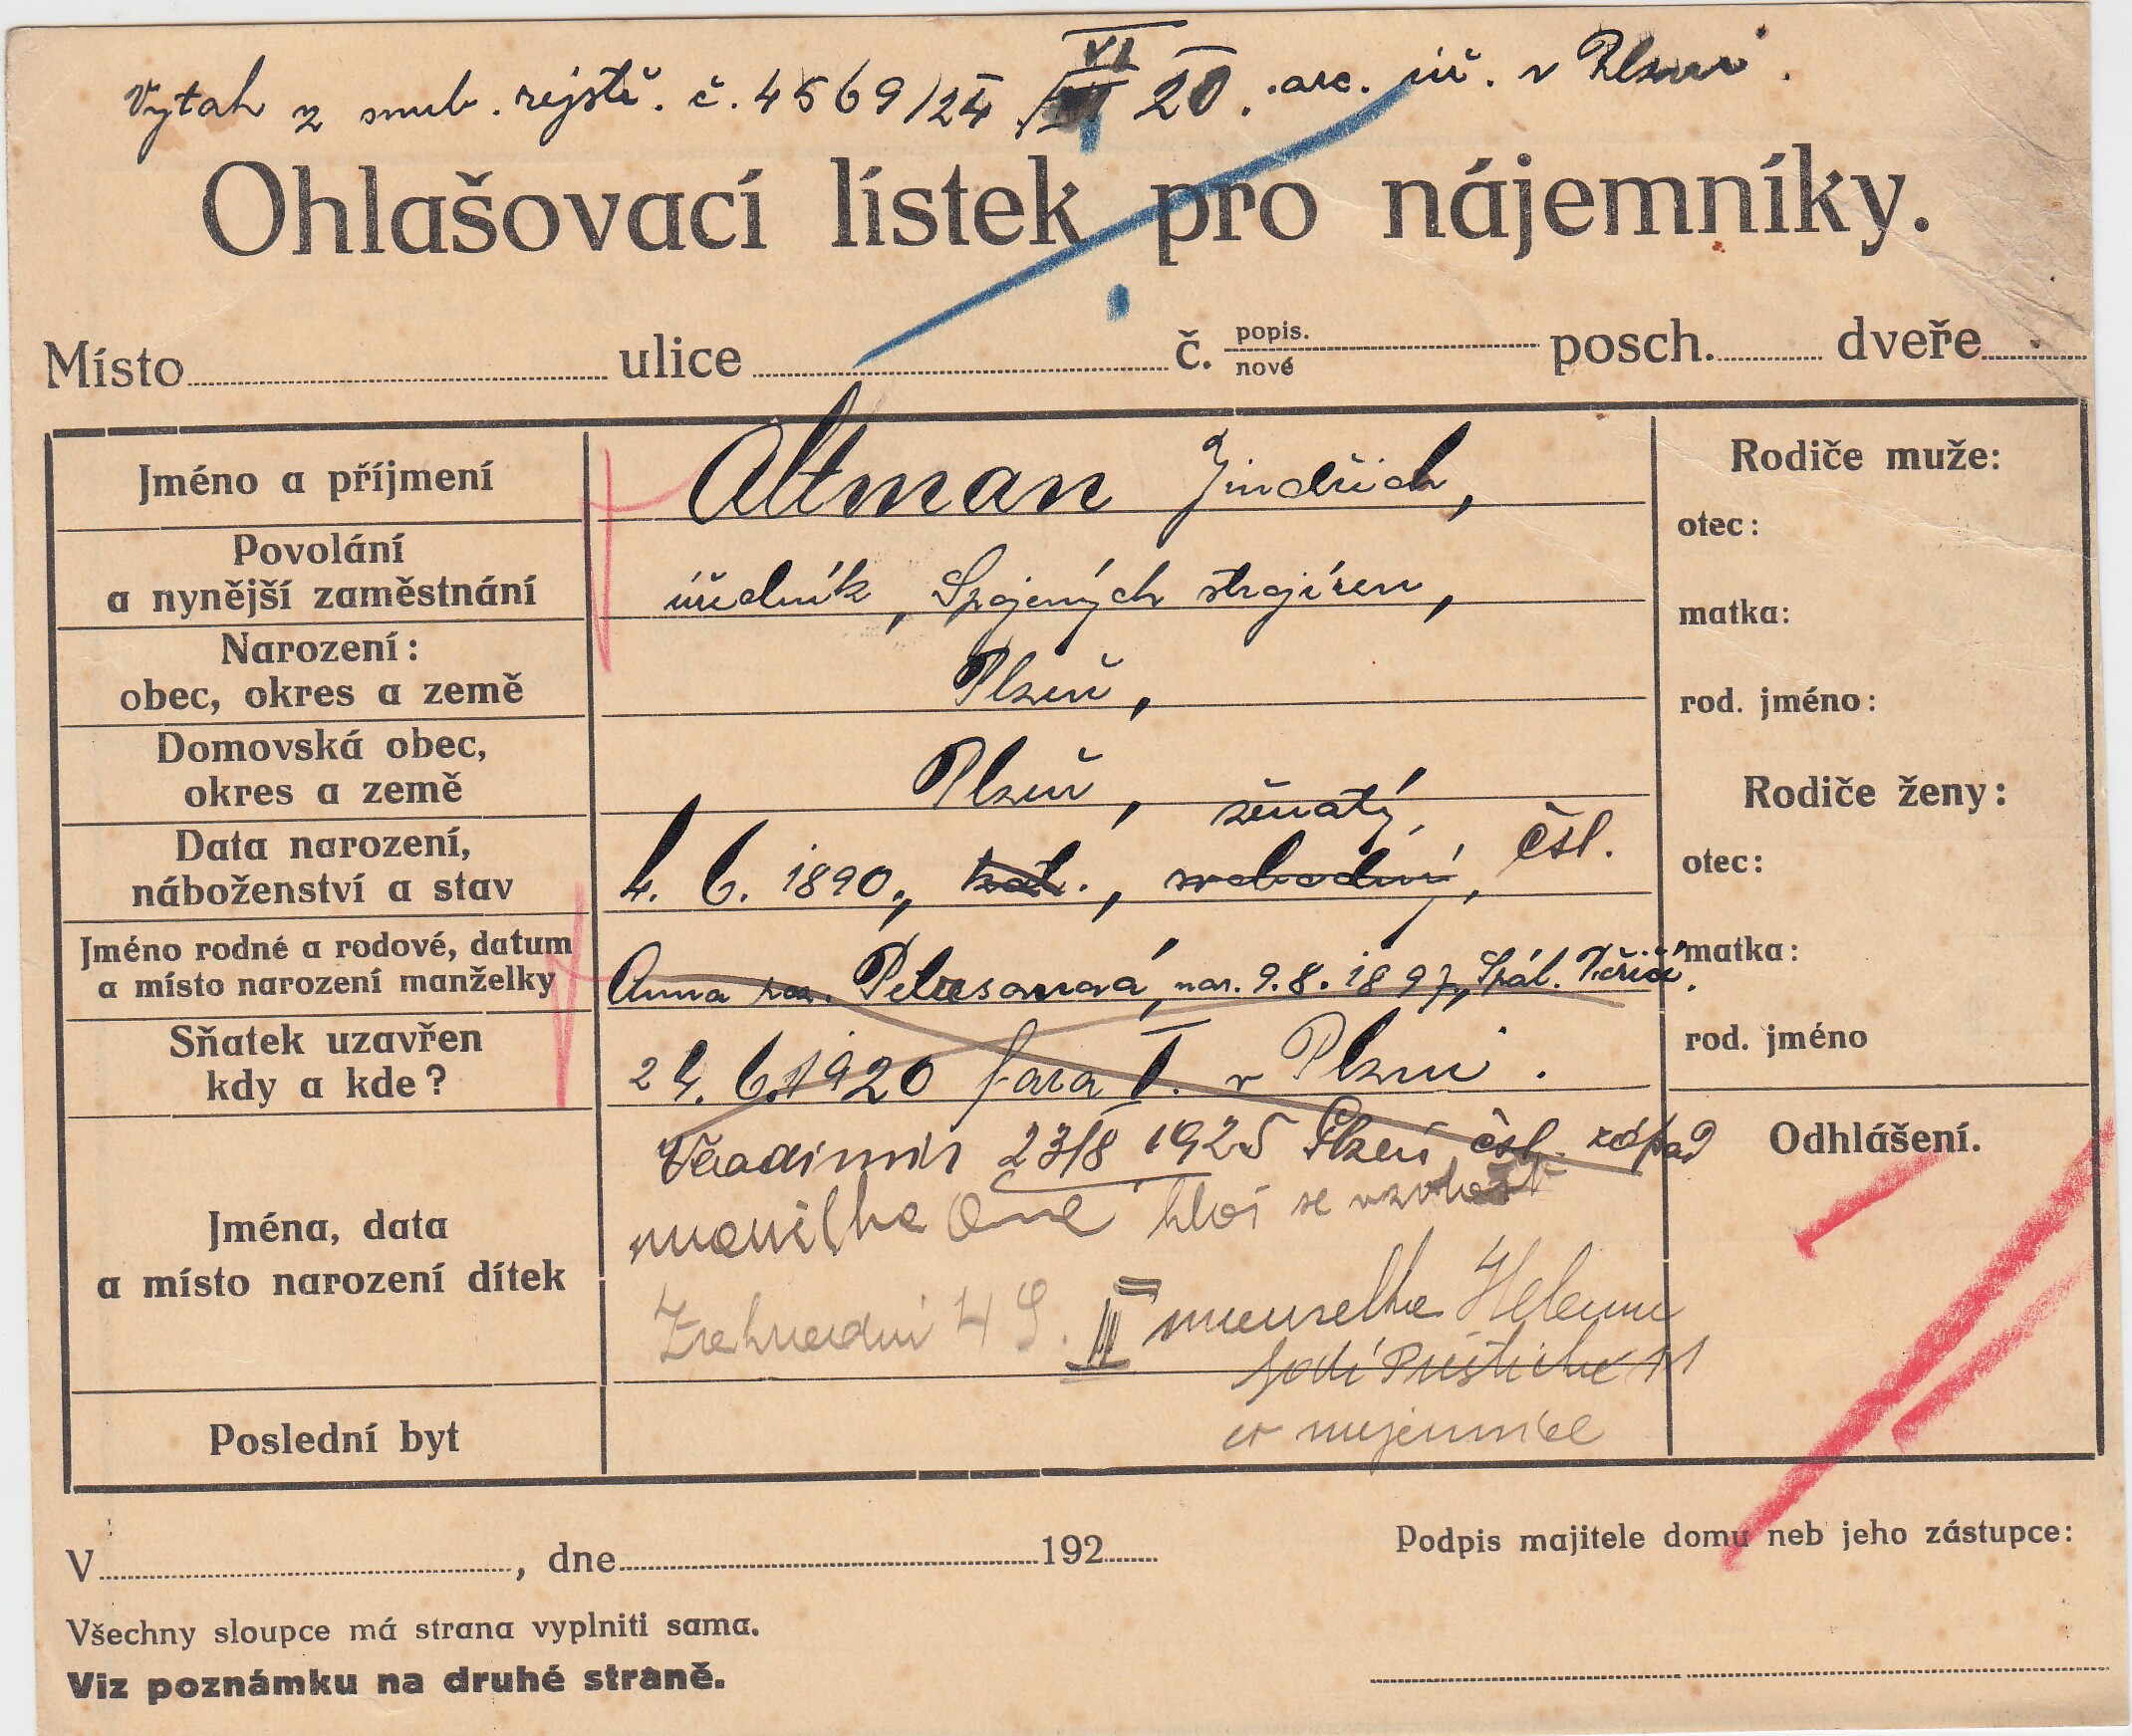 Výtah z snub. rejstř. č. 4569/24 VI 20. arc. úř. v Plzni.
Ohlašovací lístek pro nájemníky.
Místo ulice č. popis. nové posch. dveře
Jméno a příjmení
Altman Jindřich,
Povolání
a nynější zaměstnání
úředník, Spojených strojíren,
Narození:
obec, okres a země
Plzeň,
Domovská obec,
okres a země
Plzeň,
ženatý,
Data narození,
náboženství a stav
4. 6. 1890, kat., svobodný, čsl.
Jméno rodné a rodové, datum
a místo narození manželky
Anna roz. nar. 9.8.1897, Spál. Poříčí.
Sňatek uzavřen
kdy a kde?
24. 6. 1920 fara I. v Plzni.
Jména, data
a místo narození dítek
Vladimir 23/8 1925 Plzeň čsl.
manželka
49. III manželka
Poslední byt
Rodiče muže:
otec:
matka:
rod. jméno:
Rodiče ženy:
otec:
matka:
rod. jméno
Odhlášení.
V , dne 192
Podpis majitele domu neb jeho zástupce:
Všechny sloupce má strana vyplniti sama.
Viz poznámku na druhé straně.